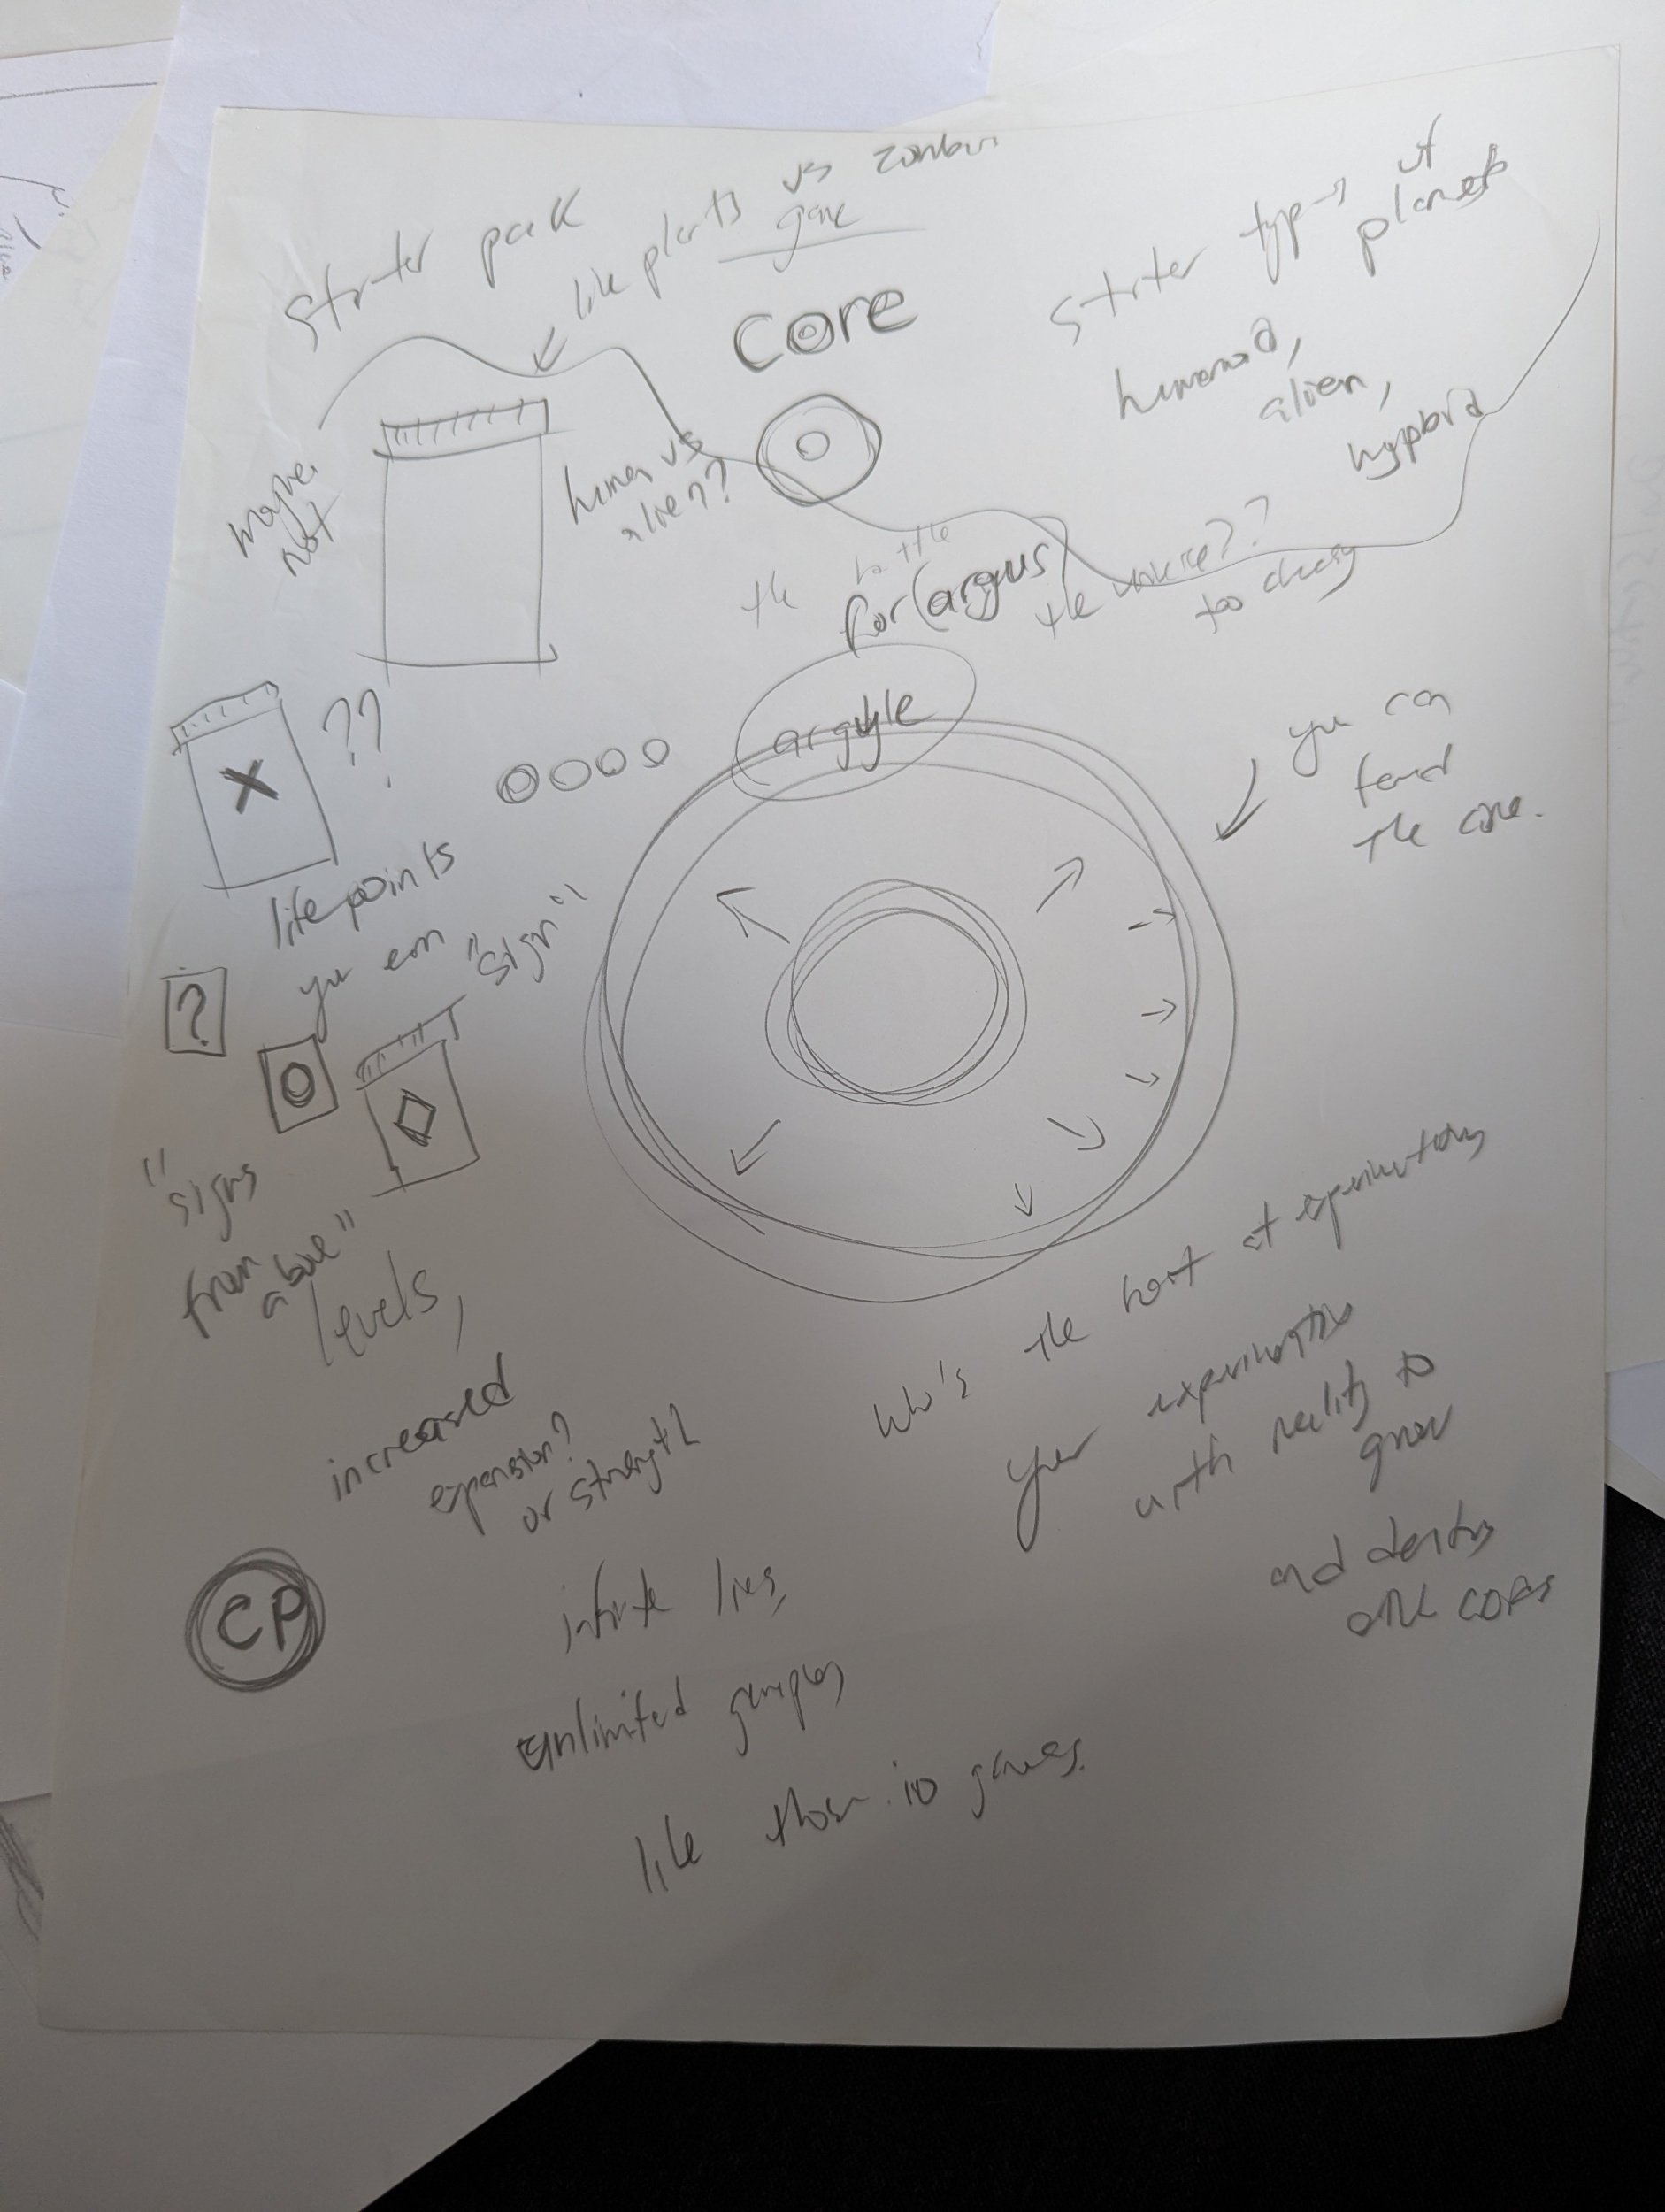 starter pack
like plants vs zombies
game
core
starter types of
planets
humanoid,
alien,
hypbrid
maybe
not
human vs
alien?
the battle
for (argus)
the universe??
too cheesy
argyle
??
X
life points
you earn "sign"
you can
fend
the core.
?
"signs
from
above"
levels,
increased
expansion?
or strength
who's the best at experimenting
your experimenting
with reality to
grow
and destroy
other cores
CP
infinite lives,
unlimited gameplay
like those .io games.